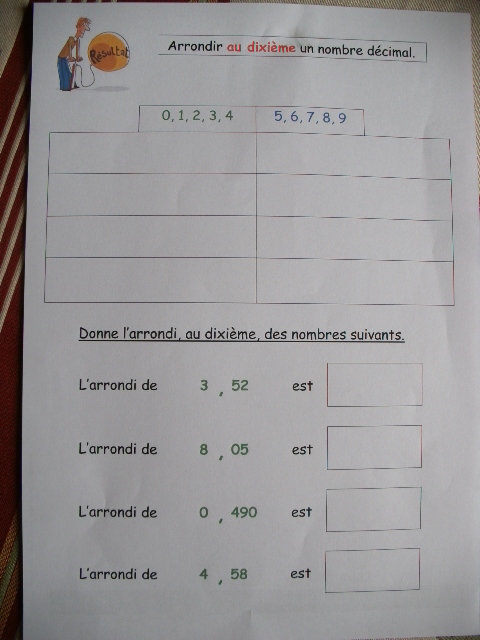 Résultat
Arrondir au dixième un nombre décimal.
0, 1, 2, 3, 4 5, 6, 7, 8, 9
Donne l'arrondi, au dixième, des nombres suivants.
L'arrondi de 3 , 52 est
L'arrondi de 8 , 05 est
L'arrondi de 0 , 490 est
L'arrondi de 4 , 58 est